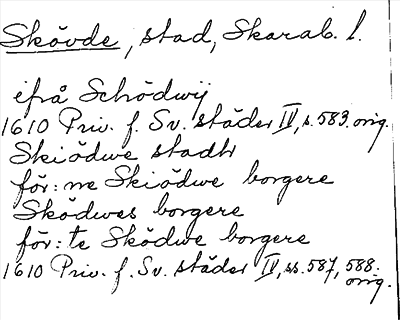 Skövde, stad, Skarab. l.
ifrå Schödwij
1610 Priv. f. Sv. städer IV, s. 583. orig.
Skiödwe stadh
för:ne Skiödwe borgere
Sködwes borgere
för:te Sködwe borgere
1610 Priv. f. Sv. städer IV, ss. 587, 588.
orig.